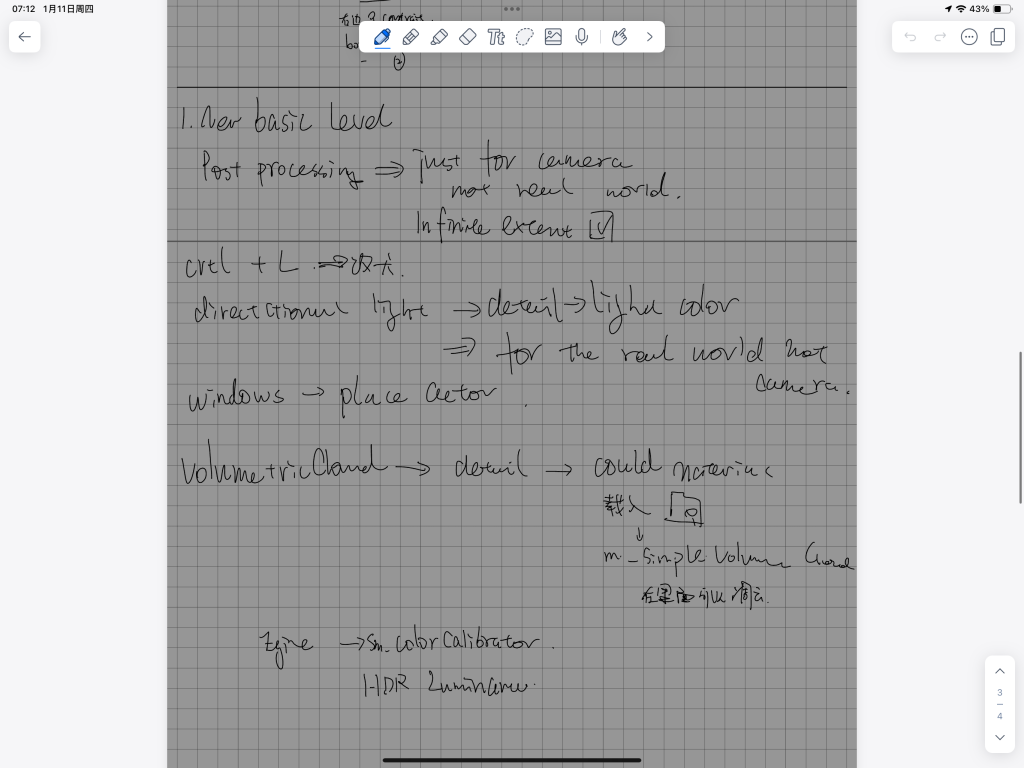 07:12 1月11日周四
43%
右边 2 contrast.
(2)
1. New basic level
Post processing ⇒ just for camera
not real world.
Infinite extent ☑
crtl + L ⇒ 改天.
directional light → detail → light color
⇒ for the real world not
camera.
windows → place actor.
Volumetric Cloud → detail → could material
载入
↓
m_Simple Volume Cloud
在里面可以调云.
→ Sm_ColorCalibrator.
HDR Luminance.
3
4